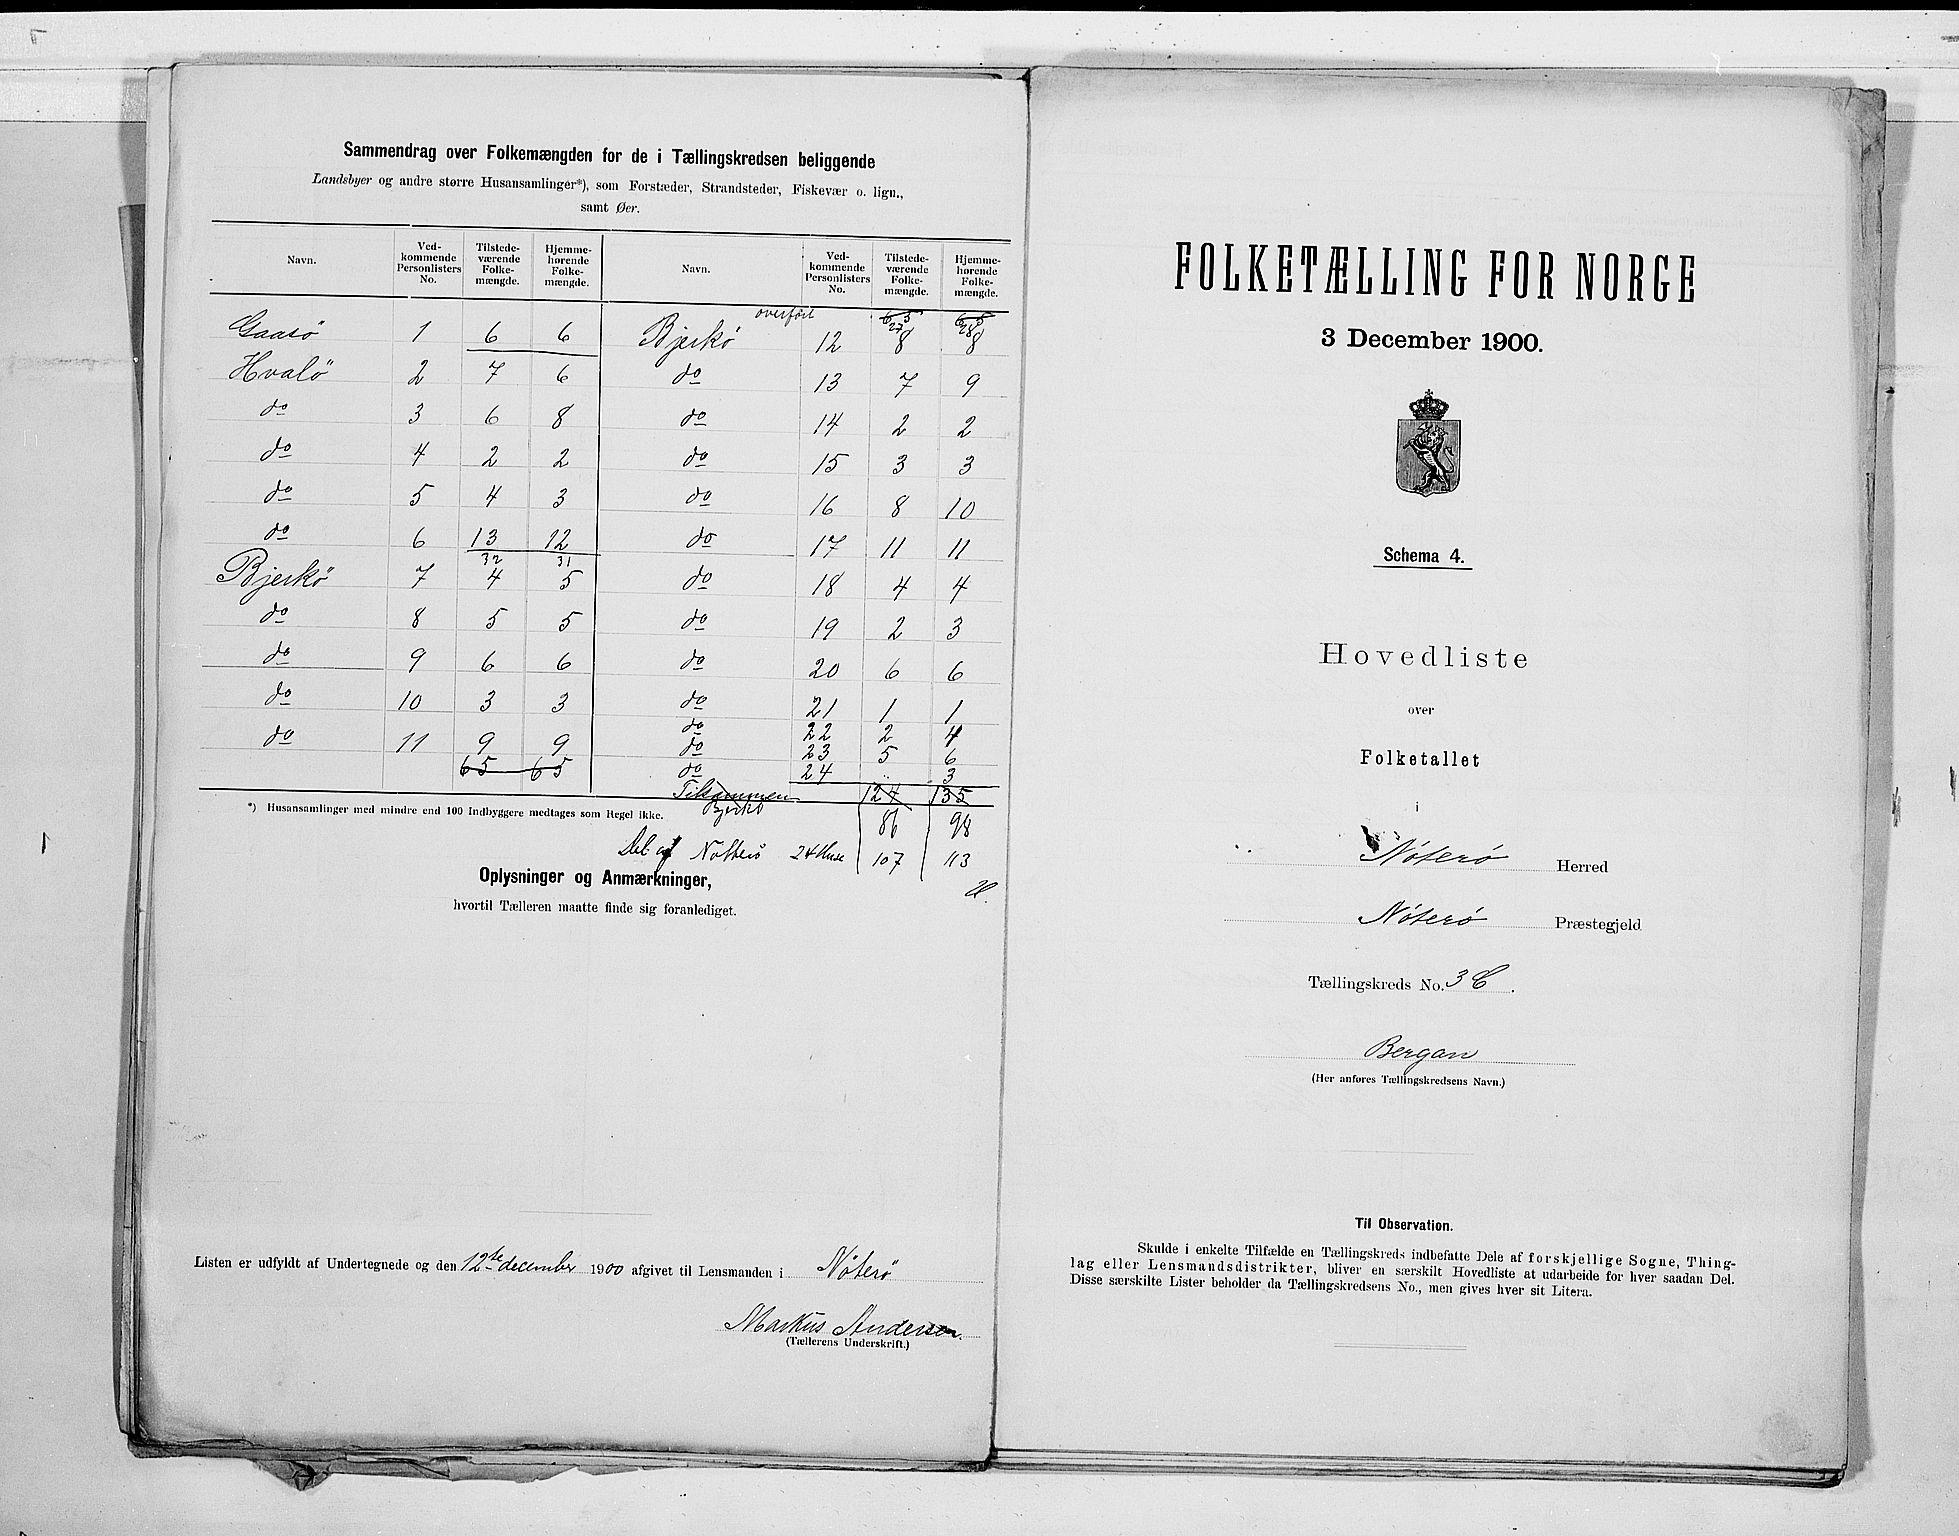 Sammendrag over Folkemængden for de i Tællingskredsen beliggende
Landsbyer og andre større Husansamlinger*), som Forstæder, Strandsteder, Fiskevær o. lign.,
samt Øer.
Navn. Ved-kommende Personlisters No. Tilstede-værende Folke-mængde. Hjemme-hørende Folke-mængde.
Gaasö 1 6 6
Hvalö 2 7 6
do 3 6 8
do 4 2 2
do 5 4 3
do 6 13 12
32 31
Bjerkö 7 4 5
do 8 5 5
do 9 6 6
do 10 3 3
do 11 9 9
65 65
Navn. Ved-kommende Personlisters No. Tilstede-værende Folke-mængde. Hjemme-hørende Folke-mængde.
overført 65 65
27 28
Bjerkö 12 8 8
do 13 7 9
do 14 2 2
do 15 3 3
do 16 8 10
do 17 11 11
do 18 4 4
do 19 2 3
do 20 6 6
do 21 1 1
do 22 2 4
do 23 5 6
do 24 .. 3
Tilsammen 124 135
Bjerkö 86 98
Del af Nötterö 24 Huse 107 113
*) Husansamlinger med mindre end 100 Indbyggere medtages som Regel ikke.
Oplysninger og Anmærkninger,
hvortil Tælleren maatte finde sig foranlediget.
Listen er udfyldt af Undertegnede og den 12te december 1900 afgivet til Lensmanden i Nöterö
Markus Andersen.
(Tællerens Underskrift.)
FOLKETÆLLING FOR NORGE
3 December 1900.
Schema 4.
Hovedliste
over
Folketallet
i
Nöterö Herred
Nöterö Præstegjeld
Tællingskreds No. 3 C.
Bergan
(Her anføres Tællingskredsens Navn.)
Til Observation.
Skulde i enkelte Tilfælde en Tællingskreds indbefatte Dele af forskjellige Sogne, Thing-
lag eller Lensmandsdistrikter, bliver en særskilt Hovedliste at udarbeide for hver saadan Del.
Disse særskilte Lister beholder da Tællingskredsens No., men gives hver sit Litera.